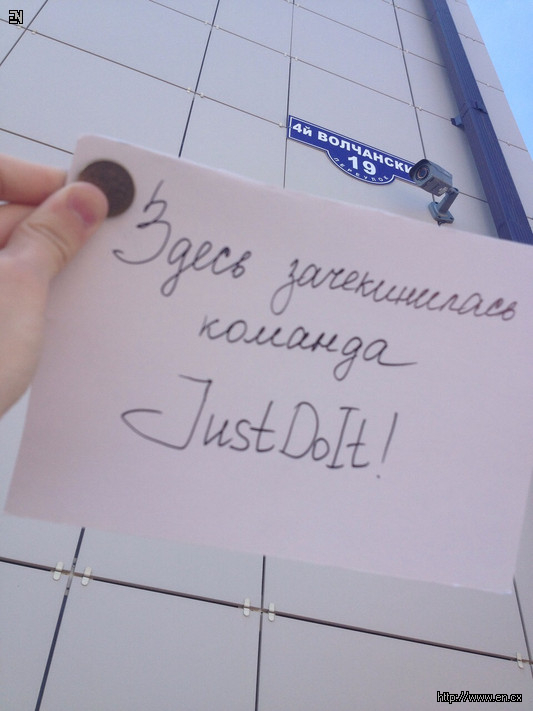 EN
4й ВОЛЧАНСКИ
19
ПЕРЕУЛОК
Здесь зачекинилась
команда
JustDoIt!
http://www.en.cx